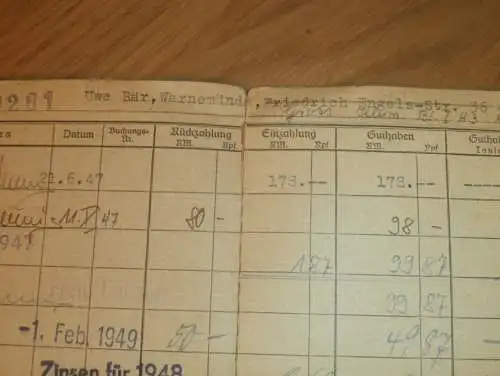 201 Uwe Bär, Warnemünde, Friedrich Engels-Str. 36
Datum Buchungs-Nr. Rückzahlung RM. Rpf. Einzahlung RM. Rpf. Guthaben RM. Rpf.
21.6.47 178.-- 178.--
11.X 47 80 - 98 -
1 87 99 87
99 87
-1. Feb. 1949 50 - 49 87
Zinsen für 1948